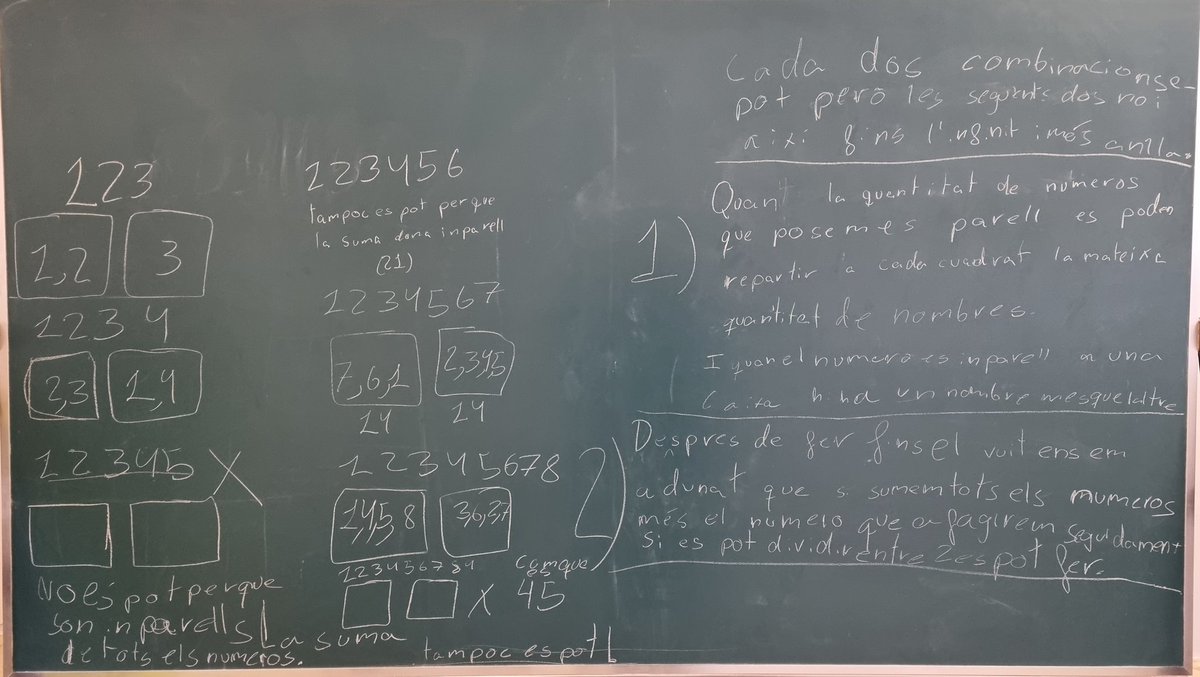 123
1,2 3
1234
2,3 1,4
12345 X
No es pot perque
son inparells La suma
de tots els numeros.
123456
tampoc es pot perque
la suma dona inparell
(21)
1234567
7,6,1 2,3,4,5
14 14
12345678
1,4,5,8 3,6,2,7
X 45
tampoc es pot
Cada dos combinacions se
pot però les seguents dos no i
aixi fins l'infinit i més
1) Quant la quentitat de numeros
que posem es parell es poden
repartir a cada cuadrat la mateixa
quantitat de nombres.
I quan el numero es inparell a una
Caixa hi ha un nombre mes que laltre
2) Despres de fer fins el vuit ens em
adunat que si sumem tots els numeros
més el numero que afagirem seguidament
si es pot dividir entre 2 es pot fer.